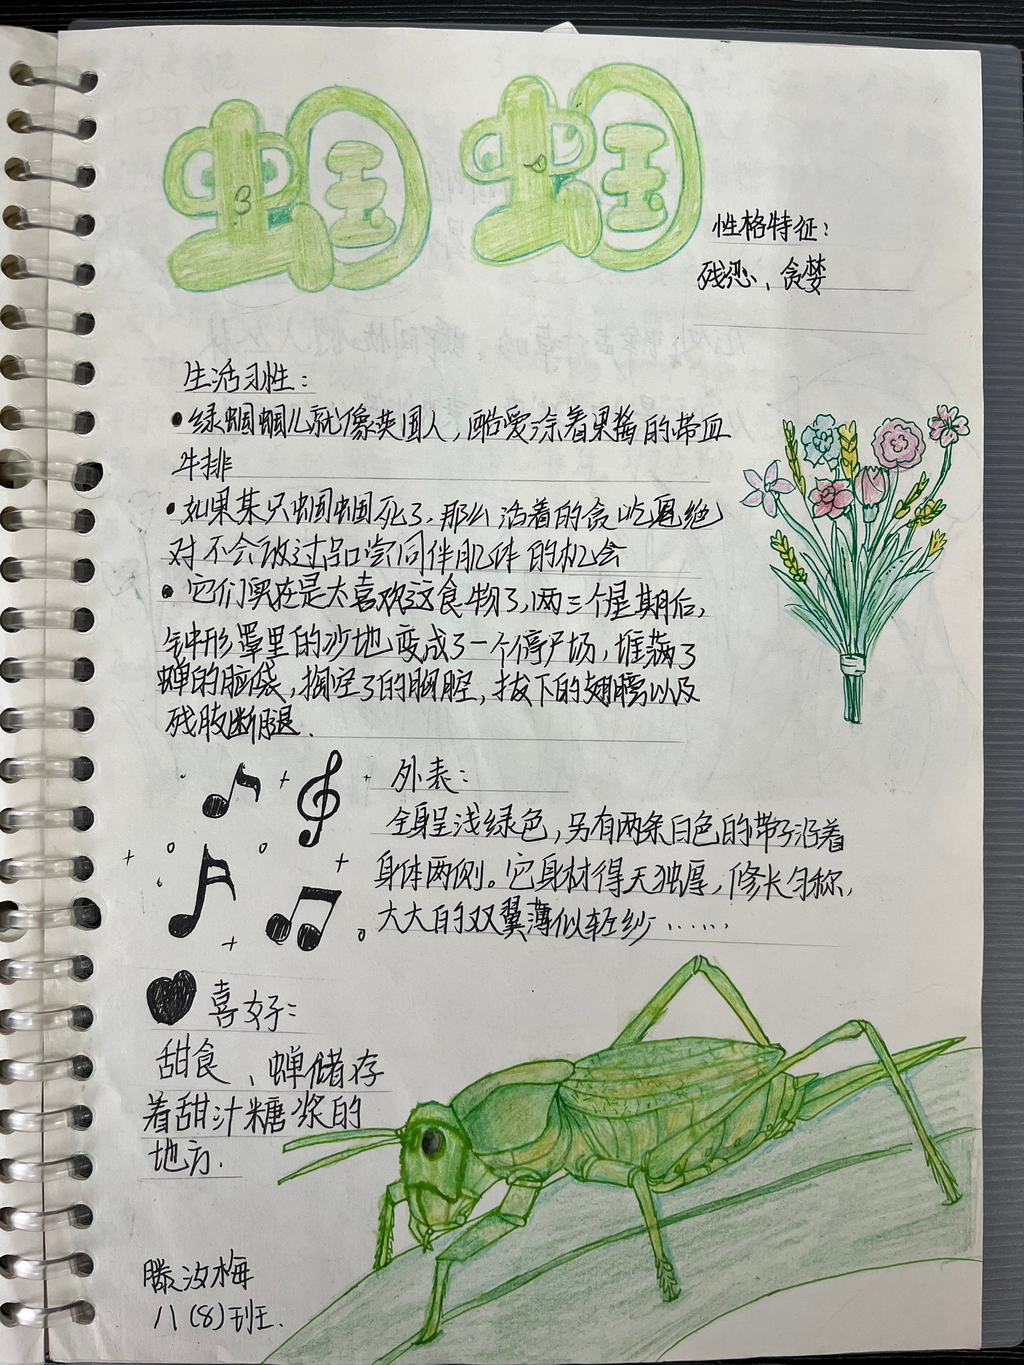 蝈蝈
性格特征：
残忍、贪婪
生活习性：
●绿蝈蝈儿就像英国人，酷爱涂着果酱的带血
牛排
●如果某只蝈蝈死了，那么活着的贪吃鬼绝
对不会放过品尝同伴肌体的机会
●它们实在是太喜欢这食物了，两三个星期后，
钟形罩里的沙地变成了一个停尸场，堆满了
蝉的脑袋，掏空了的胸腔，拔下的翅膀以及
残肢断腿.
外表：
全身呈浅绿色，另有两条白色的带子沿着
身体两侧。它身材得天独厚，修长匀称，
大大的双翼薄似轻纱……
喜好：
甜食、蝉储存
着甜汁糖浆的
地方.
滕汝梅
八(8)班.